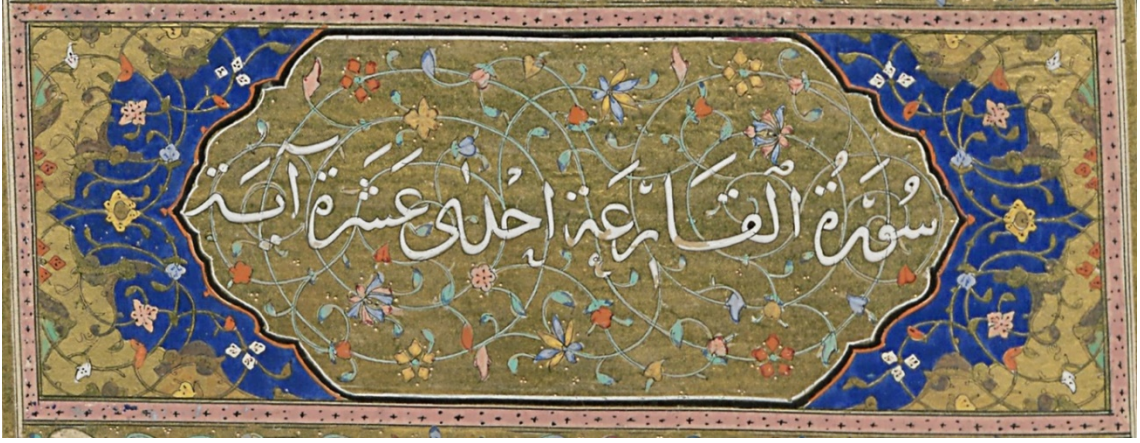 سُورَةُ الْقَارِعَة اِحْدٰى عَشَرَة آيَة